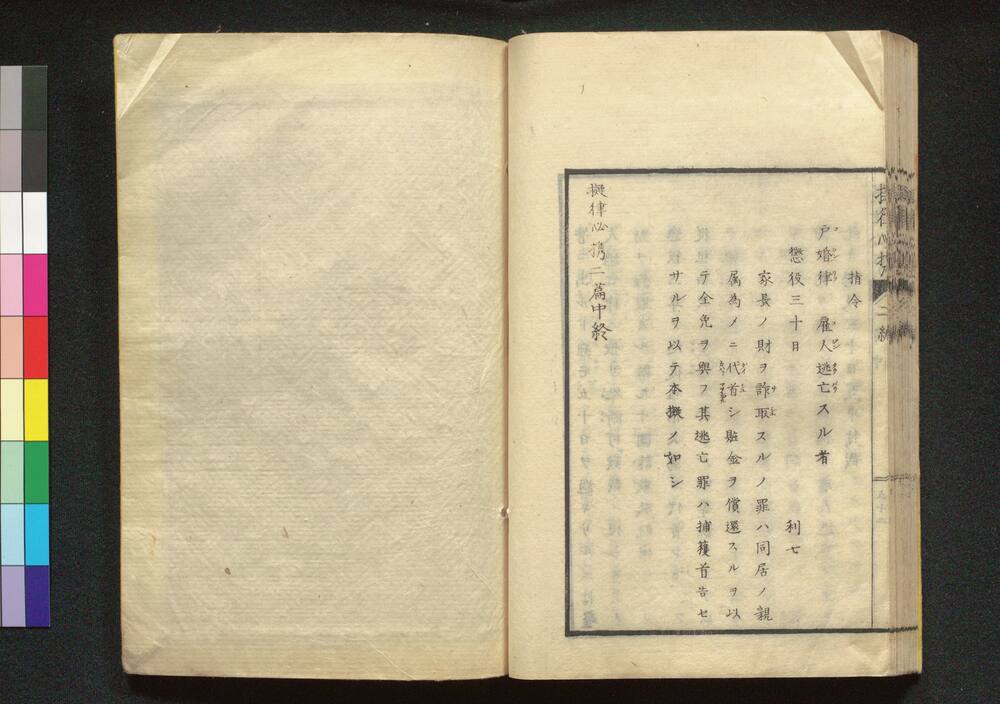 指令
戸婚律 雇人逃亡スル者
懲役三十日 利七
家長ノ財ヲ詐取スルノ罪ハ同居ノ親
属為メニ代首シ賍金ヲ償還スルヲ以
テ全免ヲ與フ其逃亡罪ハ捕獲首告セ
サルヲ以テ本擬ノ如シ
擬律必携二篇中終